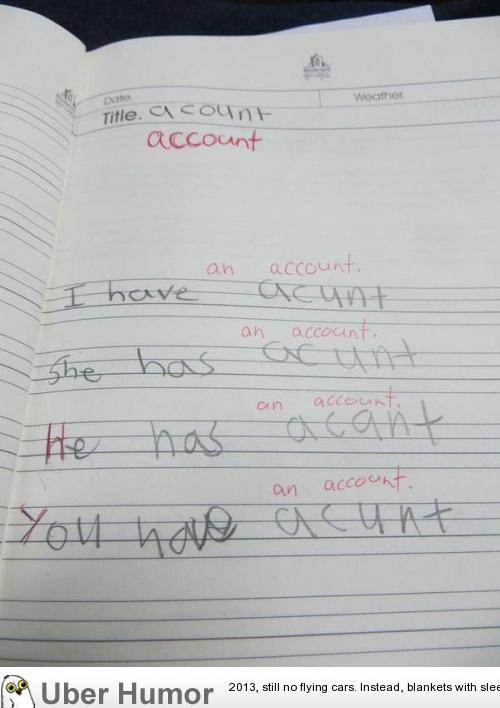 Date.
Weather.
Title. acount
account
an account.
I have acunt
an account.
She has acunt
an account.
He has acant
an account.
You have acunt
Uber Humor
2013, still no flying cars. Instead, blankets with slee